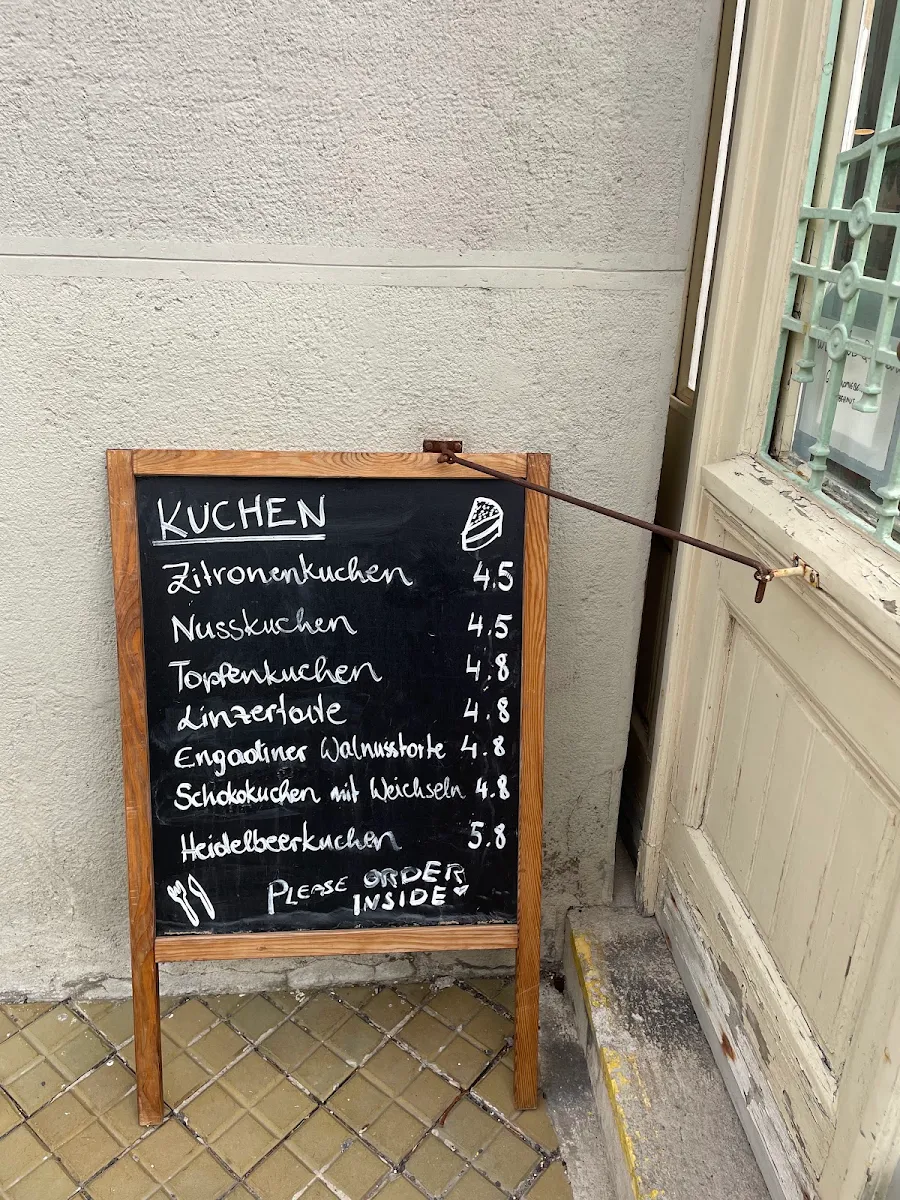 KUCHEN
Zitronenkuchen 4.5
Nusskuchen 4.5
Topfenkuchen 4.8
Linzertorte 4.8
Engadiner Walnusstorte 4.8
Schokokuchen mit Weichseln 4.8
Heidelbeerkuchen 5.8
PLEASE ORDER
INSIDE